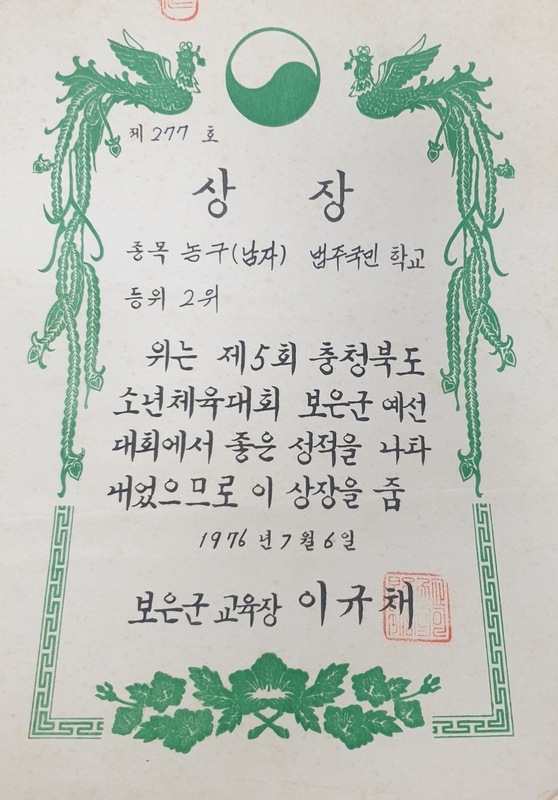 제 277 호
상 장
종목 농구(남자) 법주국민 학교
등위 2위
위는 제5회 충청북도
소년체육대회 보은군 예선
대회에서 좋은 성적을 나타
내었으므로 이 상장을 줌
1976 년 7 월 6 일
보은군 교육장 이규채